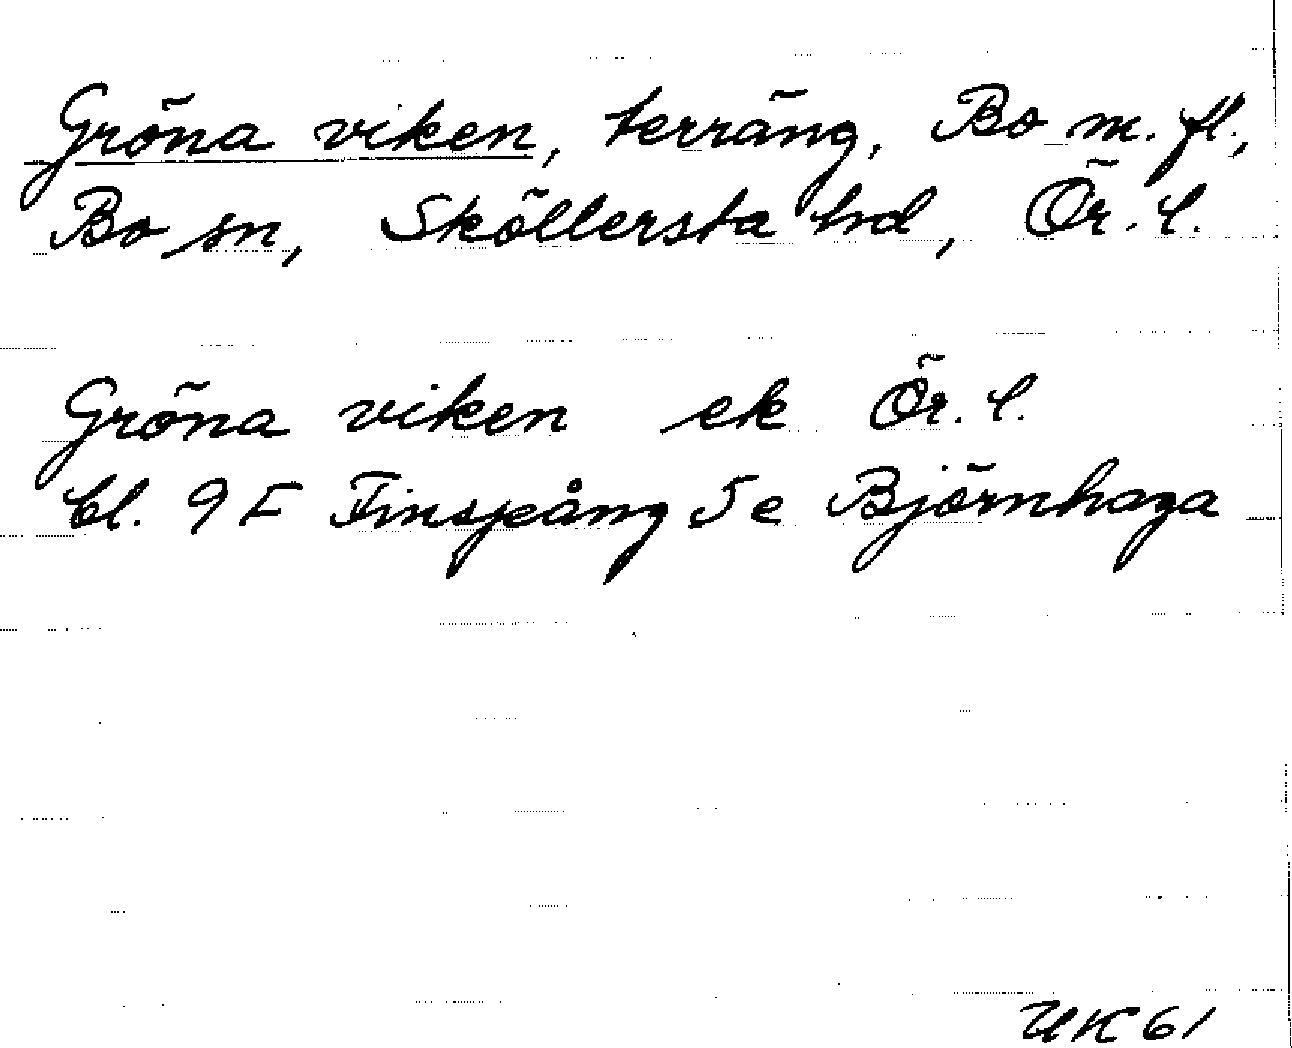 Gröna viken, terräng, Bo m. fl.,
Bo sn, Sköllersta hd, Ör. l.
Gröna viken ek Ör. l.
bl. 9 F Finspång 5 e Björnhaga
UK 61